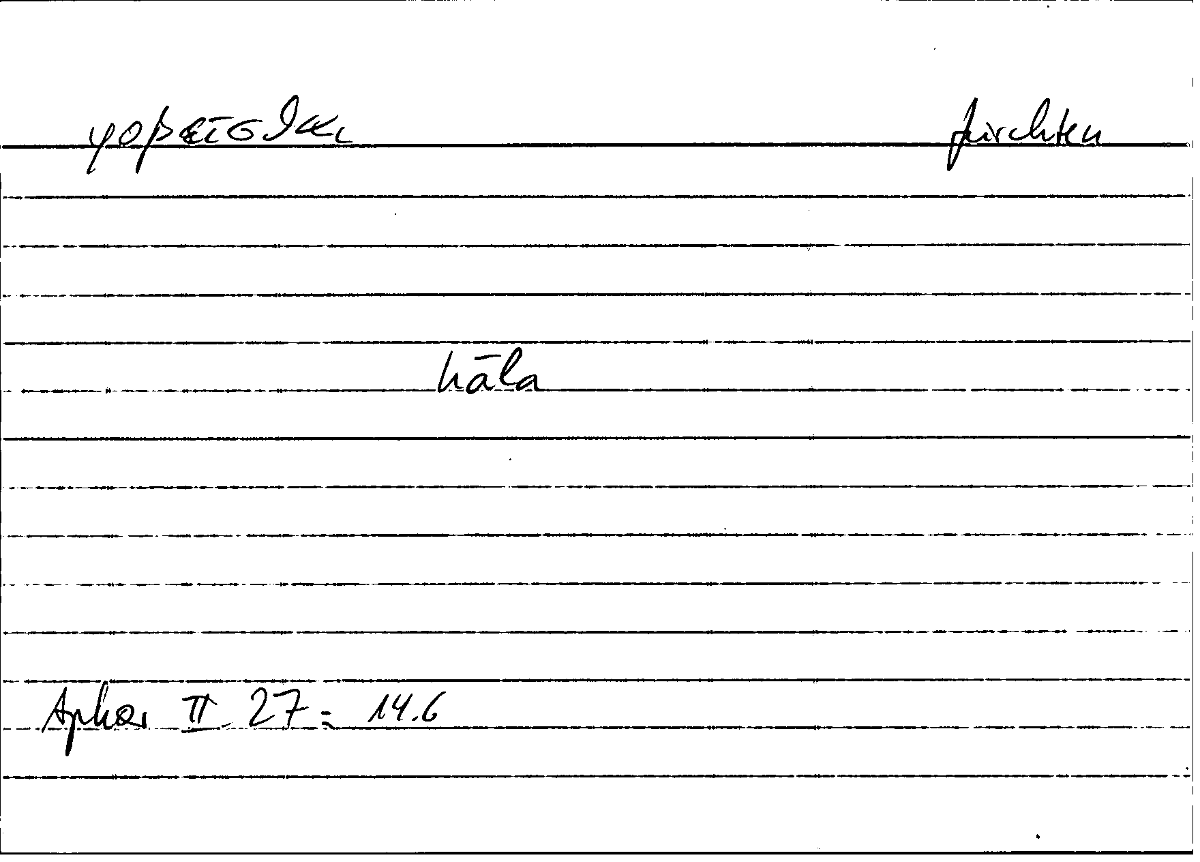 φοβεῖσθαι fürchten
hāla
Aphor II 27 = 14.6